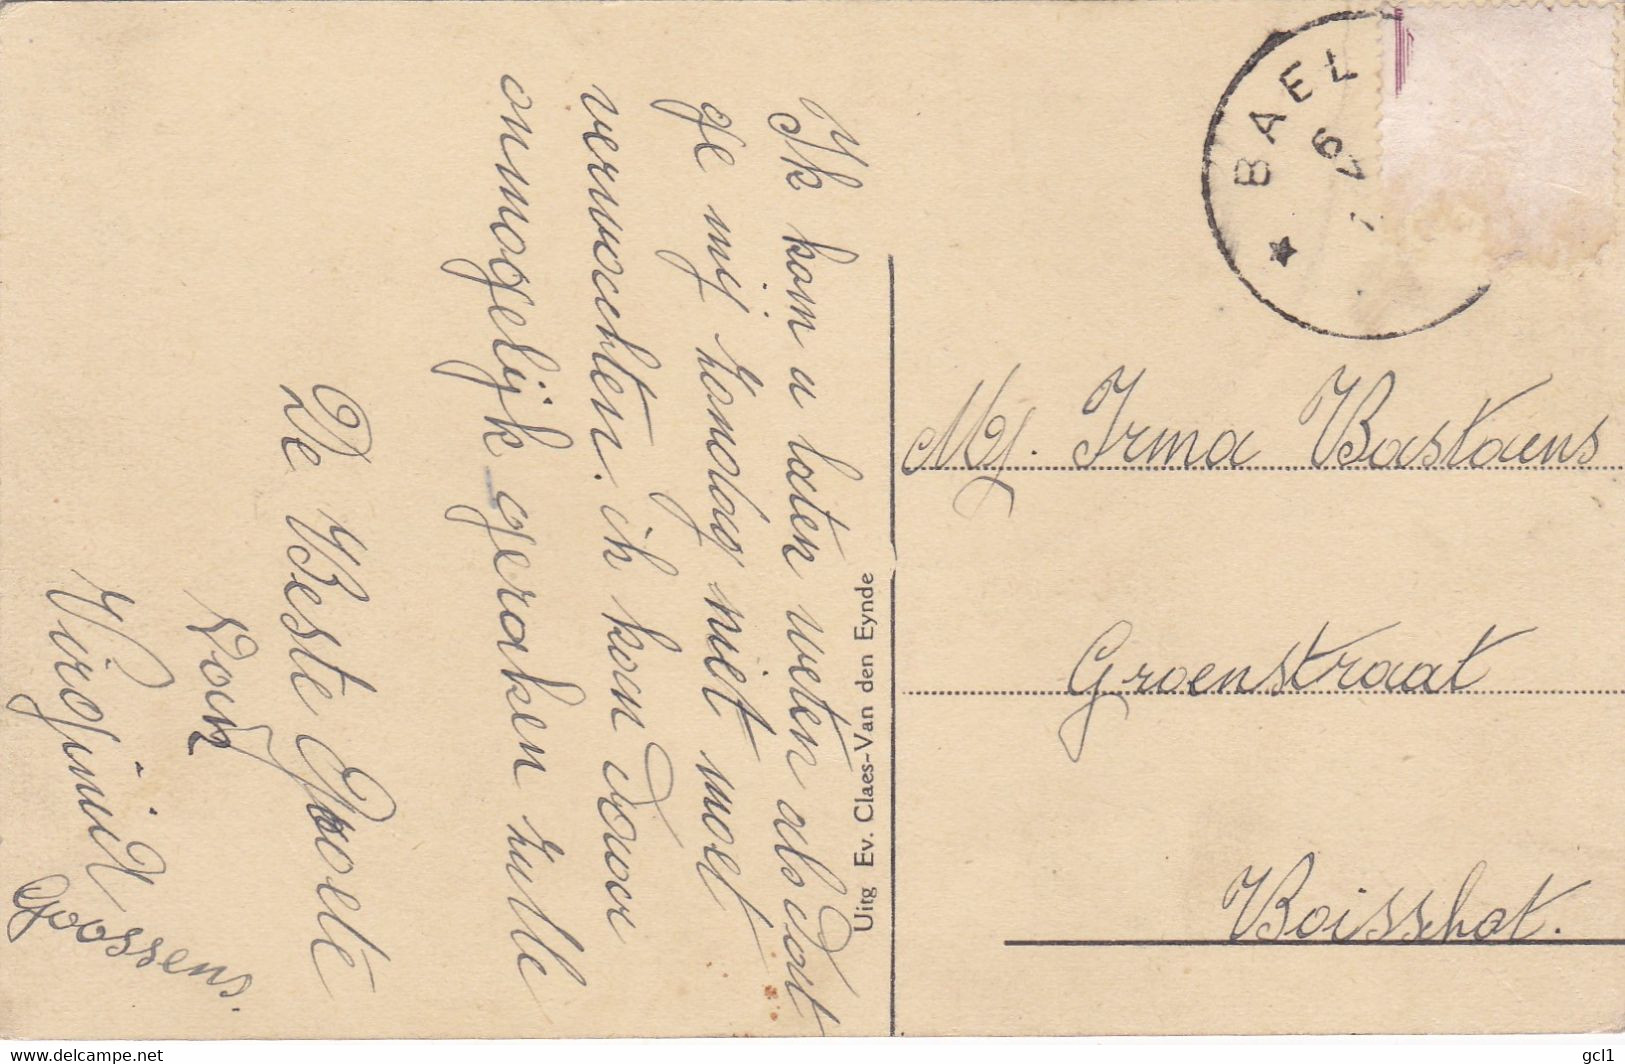 Ik kom u laten weten als dat
ge mij zondag niet moet
verwachten. ik kan daar
onmogelijk geraken zulle
De Beste Groete
van
Virginia
Goossens.
Uitg Ev. Claes-Van den Eynde
BAEL
6
Mej. Irma Bastaens
Groenstraat
Boisschot.
www.delcampe.net
gcl1